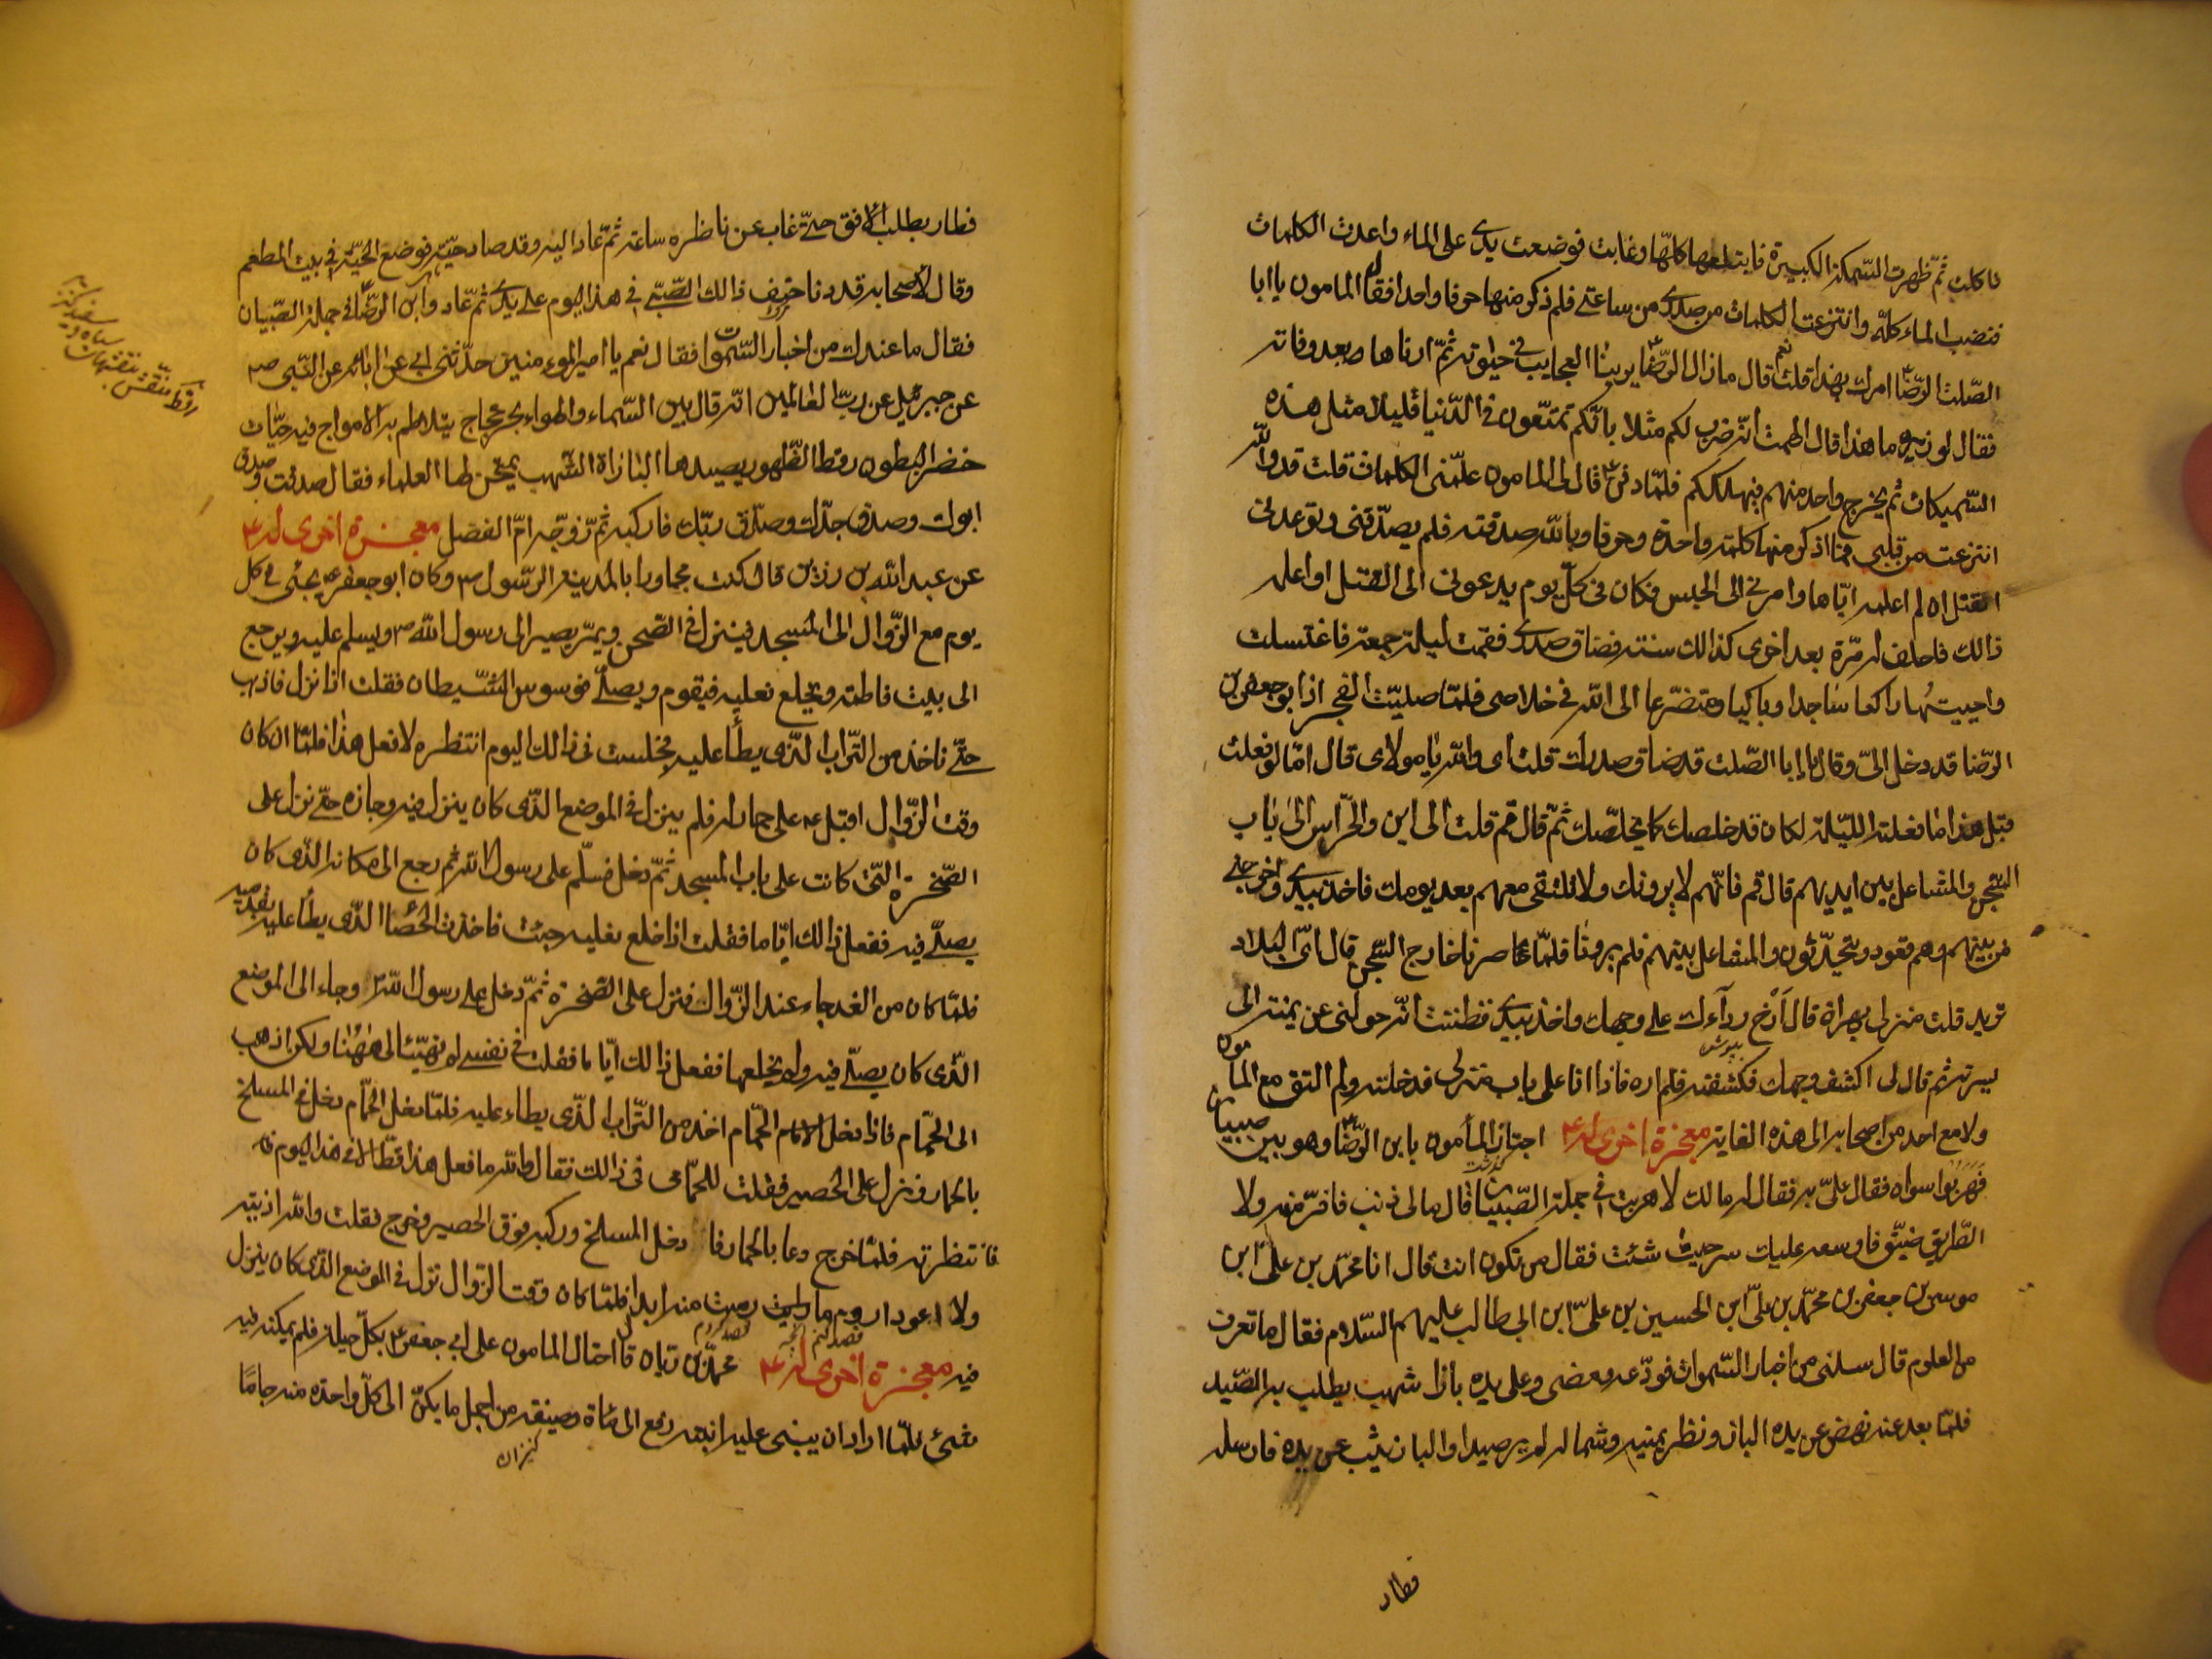 فاكلت ثمّ ظهرت السّمكة الكبيرة فابتلعها كلّها وغابت فوضعت يدى على الماء واعدت الكلمات
فنضب الماء كلّه وانتزعت الكلمات من صدرى من ساعتى فلم اذكر منها حرفا واحدا فقال المامون يا ابا
الصّلت الرّضا امرك بهذا قلت نعم قال ما زال الرّضا يرينا العجايب فى حيوته ثمّ ارناها بعد وفاته
فقال لوزيره ما هذا قال الهمت انّه ضرب لكم مثلا بانّكم تمتّعون فى الدّنيا قليلا مثل هذه
السّميكات ثم يخرج واحد منهم فيهلككم فلمّا دفن ع قال لى المامون علّمنى الكلمات قلت قد والله
انتزعت من قلبى فما اذكر منها كلمة واحدة وحرفا وبالله صدقته فلم يصدّقنى وتوعدنى
القتل ان لم اعلمه ايّاها وامر بى الى الحبس فكان فى كلّ يوم يدعونى الى القتل او اعلمه
ذالك فاحلف له مرّة بعد اخرى كذالك سنة فضاق صدرى فقمت ليلة جمعة فاغتسلت
واحييتها راكعا ساجدا وباكيا ومتضرّعا الى الله فى خلاصى فلمّا صليّت الفجر اذا ابو جعفر بن
الرّضا قد دخل الىّ وقال يا ابا الصّلت قد ضاق صدرك قلت اى والله يا مولاى قال امّا لو فعلت
قبل هذا ما فعلته اللّيلة لكان قد خلصك كما يخلّصك ثمّ قال قم قلت الى اين والحرّاس الى باب
السّجن والمشاعل بين ايديهم قال قم فانّهم لا يرونك ولا تلتقى معهم بعد يومك فاخذ بيدى واخرجنى
من بينهم وهم قعود ويتحدّثون والمشاعل بينهم فلم يرونا فلمّا صرنا خارج السّجن قال اىّ البلاد
تريد قلت منزلى بهراة قال اَرْخ رداءك على وجهك واخذ بيدى فظننت انّه حولنى عن يمنته الى
بپوش
يسرته ثم قال لى اكشف وجهك فكشفته فلم اره فاذا انا على باب منزلى فدخلته ولم التق مع المامون
ولا مع احد من اصحابه الى هذه الغاية معجزة اخرى له ع اجتاز المأمون بابن الرّضا وهو بين صبيان
كذشت
فهربوا سواه فقال علىّ به فقال له مالك لا هربت فى جملة الصّبيان قال مالى ذنب فافرّ منه ولا
الطّريق ضيّق فاوسعه عليك سر حيث شئت فقال من تكون انت قال انا محمّد بن علىّ ابن
موسى بن جعفر بن محمّد بن علىّ ابن الحسين بن علىّ ابن ابى طالب عليهم السّلام فقال ما تعرف
من العلوم قال سلنى من اخبار السّموات فودّعه ومضى وعلى يده باز اشهب يطلب به الصّيد
فلمّا بعد عنه نهض عن يده الباز ونظر يمينه وشماله لم ير صيدا والباز يثب عن يده فارسله
فطار
فطار يطلب الافق حتّى غاب عن ناظره ساعة ثمّ عاد اليه وقد صاد حيّة فوضع الحيّة فى بيت المطعم
وقال لاصحابه قد دنا حتف ذالك الصّبىّ فى هذا اليوم على يدى ثمّ عاد وابن الرّضا فى جملة الصّبيان
فقال ما عندك من اخبار السّموات فقال نعم يا امير المومنين حدّثنى ابى عن ابائه عن النّبى ص
عن جبرئيل عن ربّ العالمين انّه قال بين السّماء والهواء بحر عجاج يتلاطم به الامواج فيه حيّات
خضر البطون رقط الظّهور يصيدها البازاة الشّهب يمتحن لها العلماء فقال صدقت وصدق
ابوك وصدق جدّك وصدّق ربّك فاركبه ثمّ زوّجه امّ الفضل معجزة اخرى له ع
عن عبد الله بن رزين قال كنت مجاورا بالمدينة الرّسول ص وكان ابو جعفر ع يجئى فى كل
يوم مع الزّوال الى المسجد فينزل فى الصّحن ويمرّ يصير الى رسول الله ص ويسلم عليه ويرجع
الى بيت فاطمة ويخلع نعليه فيقوم ويصلّى فوسوس الشّيطان فقلت اذا نزل فاذهب
حتّى تاخذ من التّراب الّذى يطأ عليه فجلست فى ذالك اليوم انتظره لافعل هذا فلمّا ان كان
وقت الزّوال اقبل ع على حمار له فلم ينزل فى الموضع الّذى كان ينزل فيه وجازه حتّى نزل على
الصّخرة الّتى كانت على باب المسجد ثمّ دخل فسلّم على رسول الله ثم رجع الى مكانه الّذى كان
يصلّى فيه ففعل ذالك ايّاما فقلت اذا خلع نعليه جئت فاخذت الحصا الّذى يطأ عليه بقدميه
فلمّا كان من الغد جاء عند الزّوال فنزل على الصّخرة ثمّ دخل على رسول الله وجاء الى الموضع
الّذى كان يصلّى فيه ولم يخلعها ففعل ذالك ايّاما فقلت فى نفسى لم تهيّئا لى هٰهُنا ولكن اذهب
الى الحمّام فاذا دخل الحمّام اخذ من التّراب الّذى يطاء عليه فلمّا دخل الحمّام دخل فى المسلخ
بالحمار ونزل على الحصير فقلت للحمّامى فى ذالك فقال والله ما فعل هذا قطّ الا فى هذا اليوم
فانتظرته فلمّا خرج دعا بالحمار دخل المسلخ وركبه فوق الحصير وخرج فقلت والله اذيته
ولا اعود اروم ما رمت منه ابدا فلمّا كان وقت الزّوال نزل فى الموضع الّذى كان ينزل
فيه معجزة اخرى له ع محمّد بن ريان قال احتال المامون على ابى جعفر ع بكلّ حيلة فلم يمكنه فيه
شئ فلمّا اراد ان يبنى عليه ابنته دفع الى مائة وصيفة من اجمل ما يكنّ الى كلّ واحدة منه جامًا
كنيزان